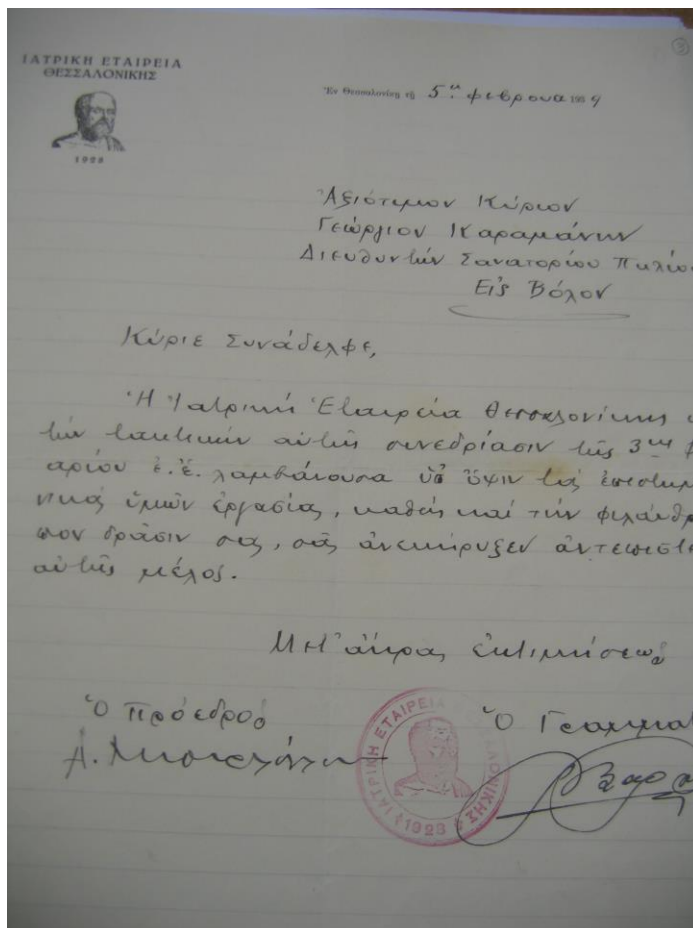 ΙΑΤΡΙΚΗ ΕΤΑΙΡΕΙΑ
ΘΕΣΣΑΛΟΝΙΚΗΣ
1923
Ἐν Θεσσαλονίκῃ τῇ 5ῃ φεβρουα 195
Ἀξιότιμον Κύριον
Γεώργιον Καραμάνην
Διευθυντὴν Σανατορίου Πηλίο
Εἰς Βόλον
Κύριε Συνάδελφε,
Ἡ Ἰατρικὴ Ἑταιρεία Θεσσαλονίκης
τὴν τακτικὴν αὐτῆς συνεδρίασιν τῆς 3ης
αρίου ἐ.ἔ. λαμβάνουσα ὑπ' ὄψιν τὰς ἐπιστημ
νικάς ὑμῶν ἐργασίας, καθὼς καί τὴν φιλάνθρ
πον δρᾶσιν σας, σᾶς ἀνεκήρυξεν ἀντεπιστέ
αὐτῆς μέλος.
Μετ' ἄκρας ἐκτιμήσεως
Ὁ Πρόεδρος
Ὁ Γραμματ
Α.
ΙΑΤΡΙΚΗ ΕΤΑΙΡΕΙΑ ΘΕΣΣΑΛΟΝΙΚΗΣ
1923